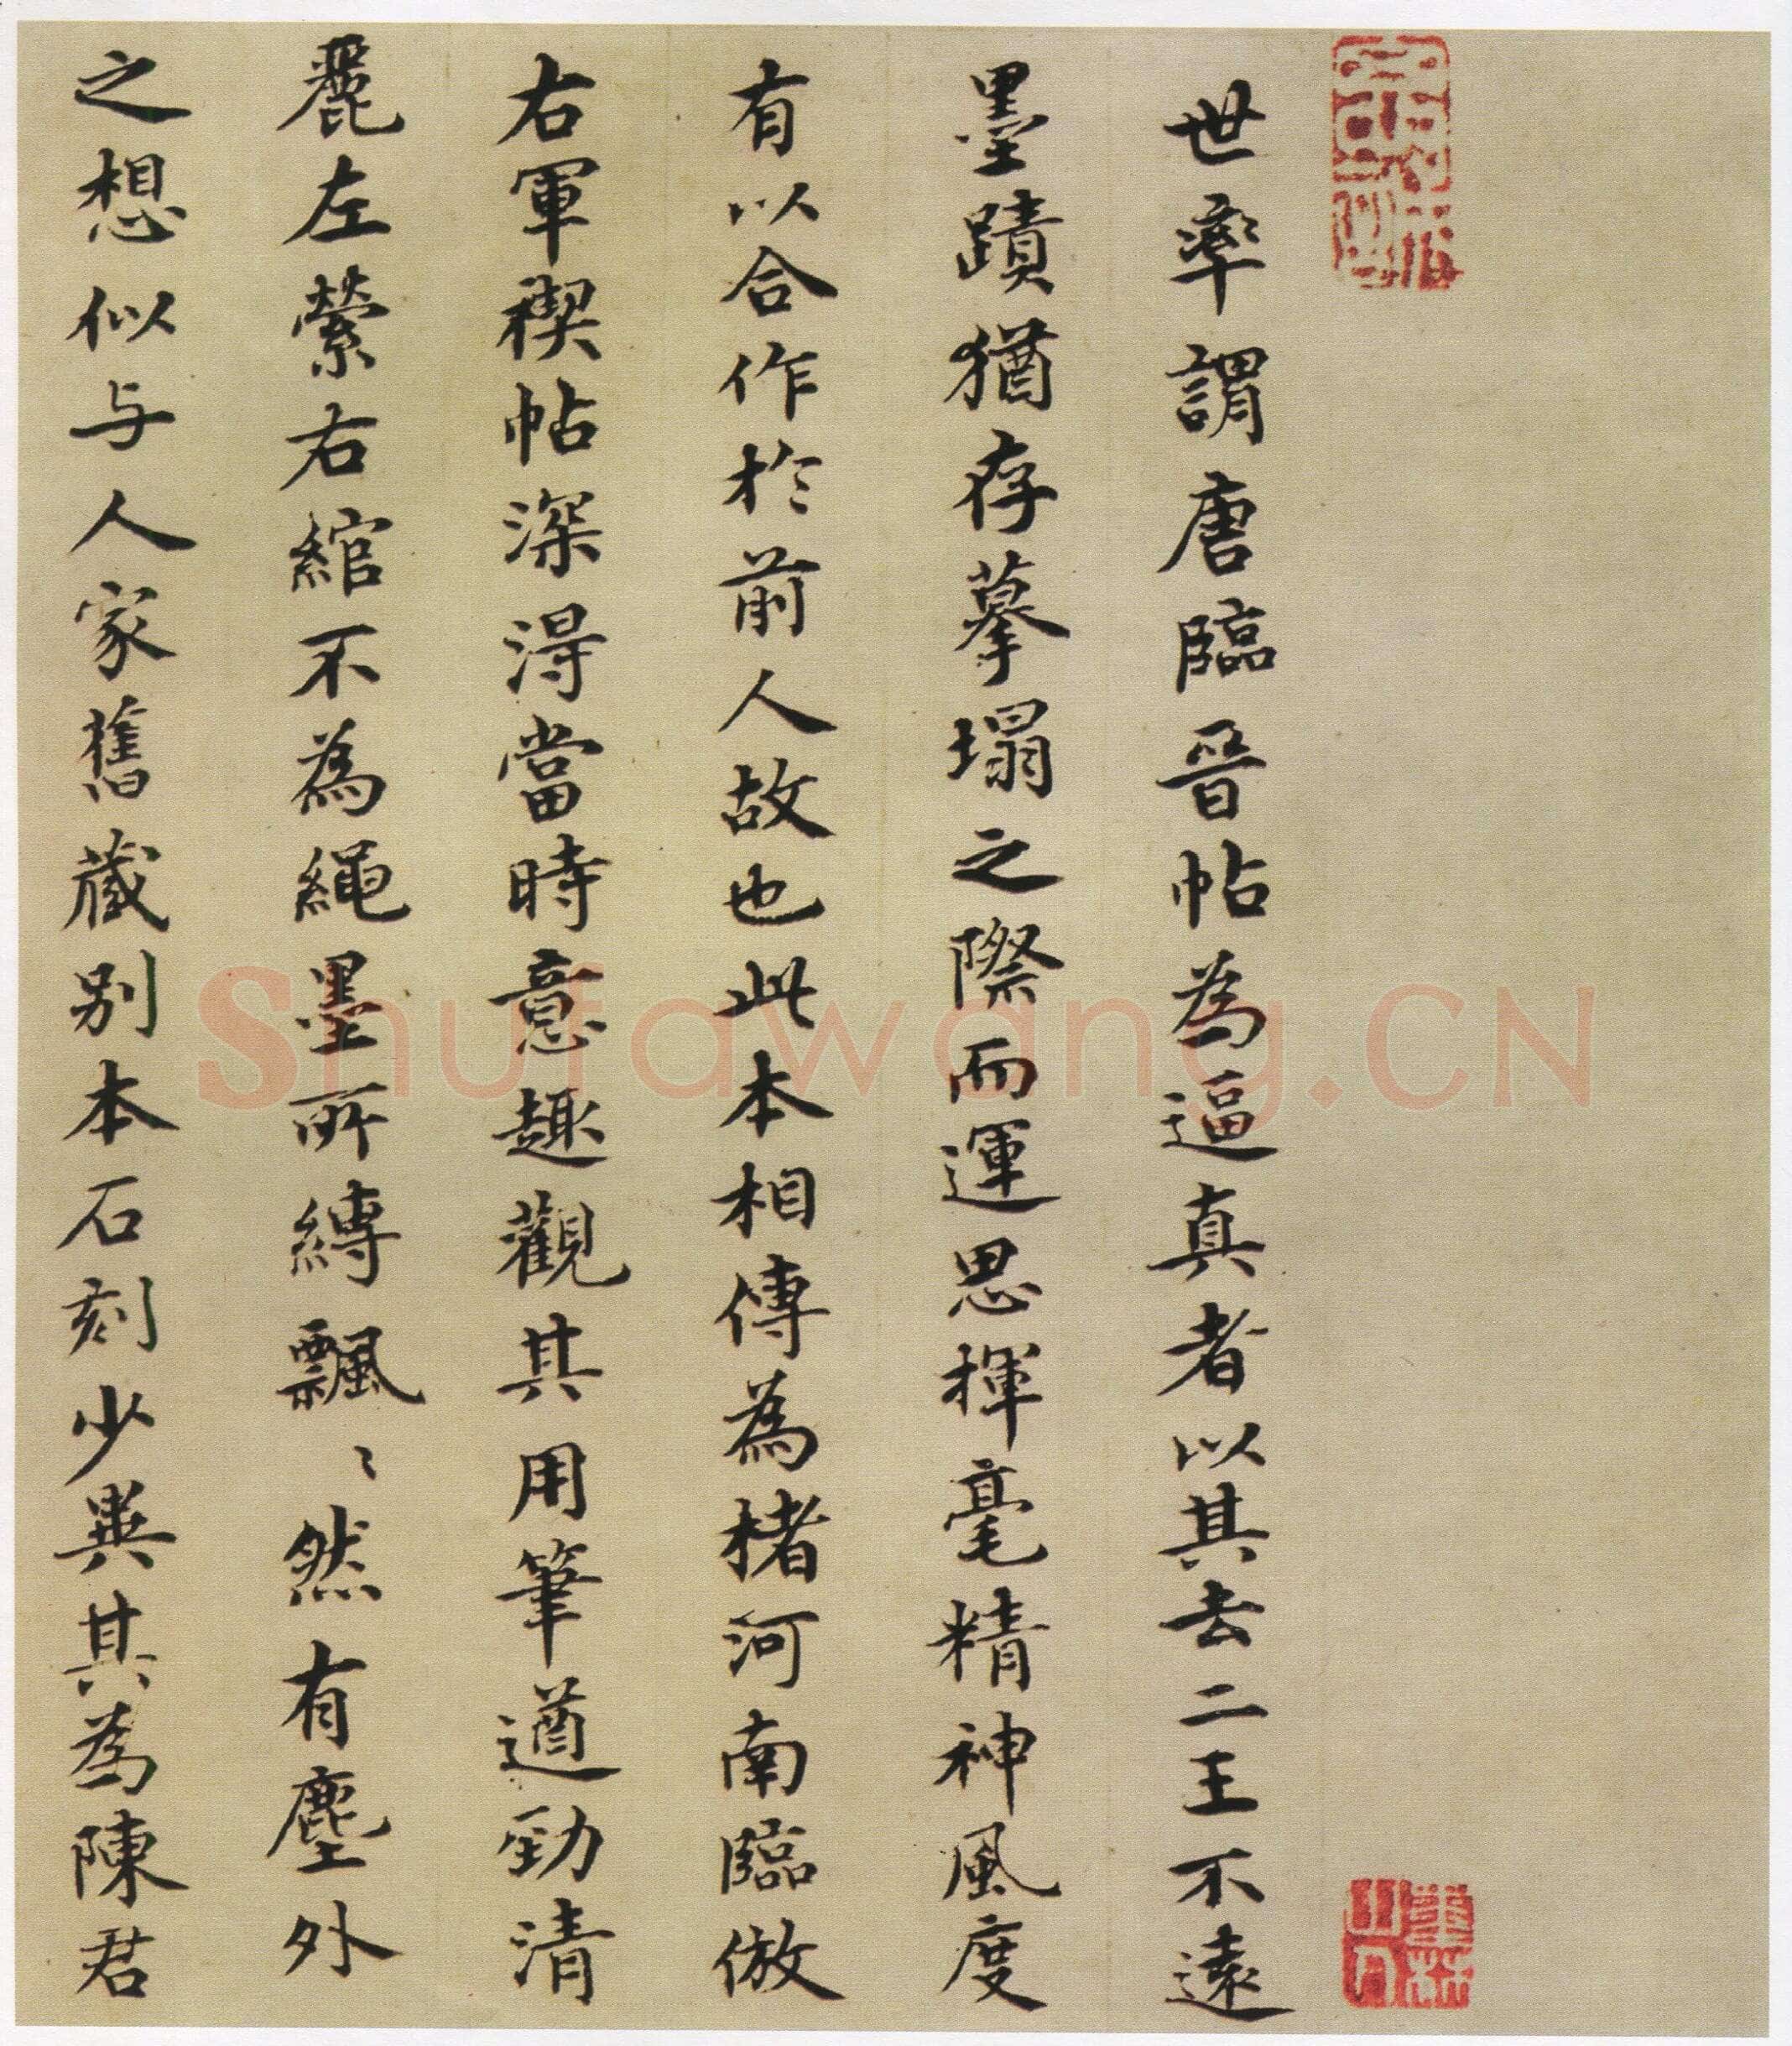 世率謂唐臨晉帖為逼真者以其去二王不遠
墨蹟猶存摹搨之際而運思揮毫精神風度
有以合作於前人故也此本相傳為楮河南臨倣
右軍禊帖深淂當時意趣觀其用筆遒勁清
麗左縈右綰不為繩墨所縛飄〻然有塵外
之想似与人家舊藏別本石刻少異其為陳君
Shufawang.CN